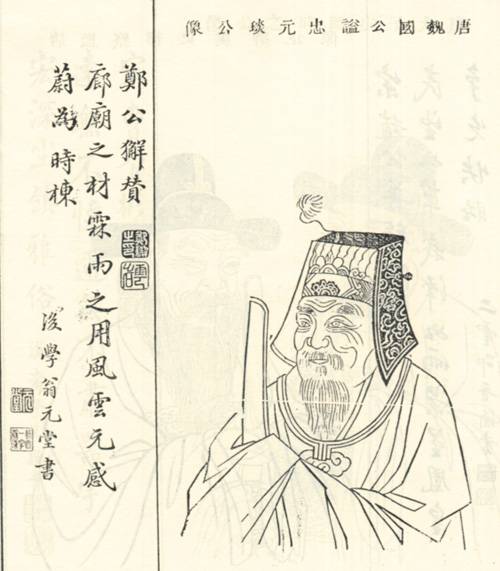 唐魏國公謚忠元琰公像
鄭公獬賛
廊廟之材霖雨之用風雲元感
蔚為時棟
後學翁元堂書